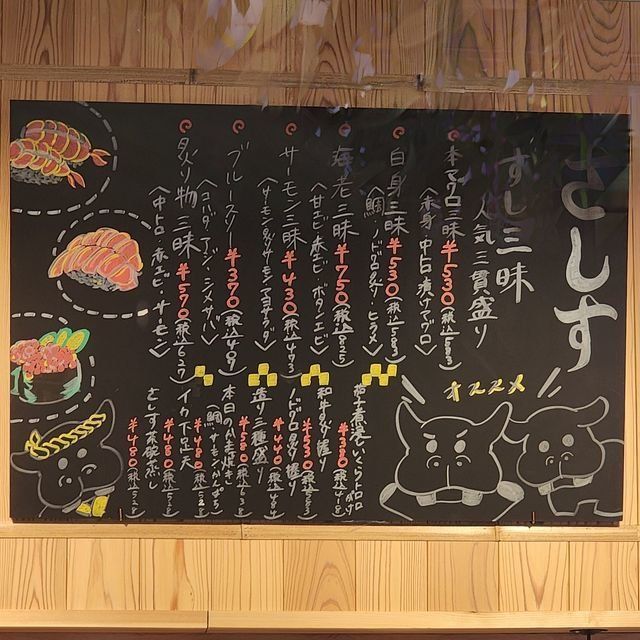 さしす
ずし三昧
人気三貫盛り
本マグロ三昧 ¥530(税込583)
〈本身・中トロ・漬けマグロ〉
白身三昧 ¥530(税込583)
〈鯛・ノドグロ炙り・ヒラメ〉
海老三昧 ¥750(税込825)
〈甘エビ・赤エビ・ボタンエビ〉
サーモン三昧 ¥430(税込473)
ブルースリー ¥370(税込409)
〈コハダ・アジ・シメサバ〉
炙り物三昧 ¥570(税込627)
〈中トロ・赤エビ・サーモン〉
オススメ
¥380(税込418)
和牛炙り握り
¥530(税込583)
ノドグロ炙り握り
¥440(税込484)
造り三種盛り
¥580(税込638)
¥480(税込528)
イカ下足天
¥480(税込528)
さしす茶碗蒸し
¥480(税込528)